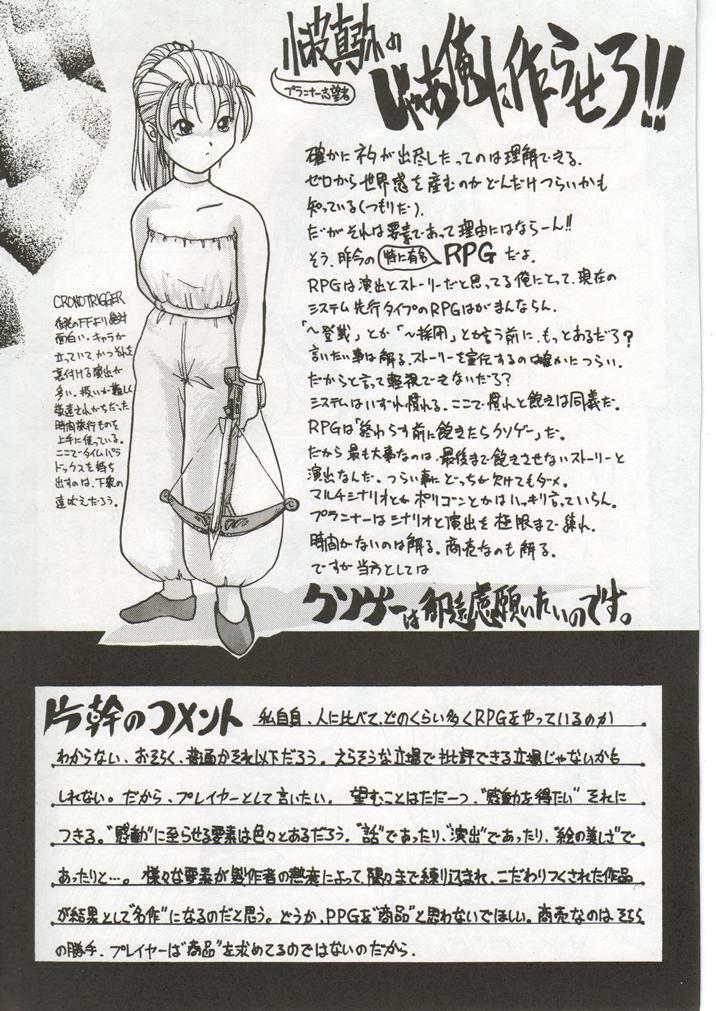 真弥の
じゃあ俺に作らせろ!!
プランナー志望者
確かにネタが出尽したってのは理解できる。
ゼロから世界感を産むのがどんだけつらいかも
知っている(つもりだ)。
だがそれは要素であって理由にはならーん!!
そう、昨今の 特に有名 RPGだよ。
RPGは演出とストーリーだと思ってる俺にとって、現在の
システム先行タイプのRPGはがまんならん。
「〜登載」とか「〜採用」とか言う前に、もっとあるだろ?
言いたい事は解る。ストーリーを宣伝するのは確かにつらい。
だからと言って軽視できないだろ?
システムはいずれ慣れる。ここで慣れと飽きは同義だ。
RPGは「終わらす前に飽きたらクソゲー」だ。
だから最も大事なのは、最後まで飽きさせないストーリーと
演出なんだ。つらい事にどっちが欠けてもダメ。
マルチシナリオとかポリゴンとかはハッキリ言っていらん。
プランナーはシナリオと演出を極限まで練れ。
時間がないのは解る。商売なのも解る。
ですが当方としては
クソゲーは御遠慮願いたいのです。
CRONOTRIGGER
FFより絶対
面白い。キャラが
立っていて、かつ
裏付ける演出が
多い。扱いが難しく
敬遠されがちだった
時間旅行ものを
上手に使っている。
ここでタイムパラ
ドックスを持ち
出すのは、下衆の
遠吠えだろう。
片幹のコメント
私自身、人に比べて、どのくらい多くRPGをやっているのか
わからない、おそらく、普通かそれ以下だろう。えらそうな立場で批評できる立場じゃないかも
しれない。だから、プレイヤーとして言いたい。望むことはただ一つ、"感動を得たい" それに
つきる。"感動"に至らせる要素は色々とあるだろう。"話"であったり、"演出"であったり、"絵の美しさ"で
あったりと…。様々な要素が製作者の熱意によって、隅々まで練り込まれ、こだわりつくされた作品
が結果として"名作"になるのだと思う。どうか、RPGを"商品"と思わないでほしい。商売なのはそちら
の勝手、プレイヤーは"商品"を求めてるのではないのだから。